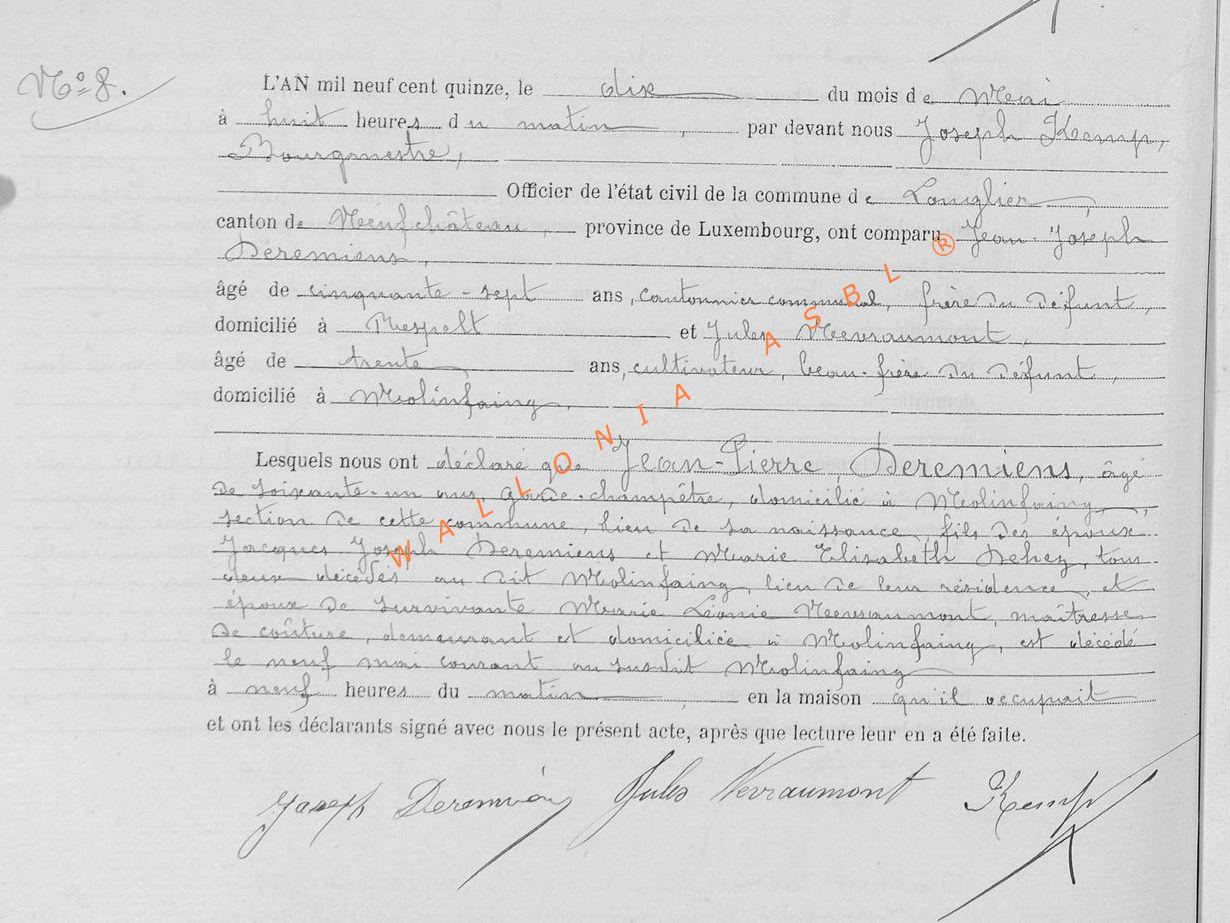 No 8.
L'AN mil neuf cent quinze, le dix du mois de Mai
à huit heures du matin, par devant nous Joseph Kemp,
Bourgmestre,
Officier de l'état civil de la commune de Longlier,
canton de Neufchâteau, province de Luxembourg, ont comparu Jean-Joseph
Deremiens,
âgé de cinquante-sept ans, cantonnier communal, frère du défunt,
domicilié à Respelt et Jules Nevraumont,
âgé de trente ans, cultivateur, beau-frère du défunt,
domicilié à Molinfaing,
Lesquels nous ont déclaré que Jean-Pierre Deremiens, âgé
de soixante-un ans, garde-champêtre, domicilié à Molinfaing,
section de cette commune, lieu de sa naissance, fils des époux
Jacques Joseph Deremiens et Marie Elisabeth Dehez, tous
deux décédés au dit Molinfaing, lieu de leur résidence, et
époux de survivante Marie Léonie Nevraumont, maîtresse
de coûture, demeurant et domiciliée à Molinfaing, est décédé
le neuf mai courant au susdit Molinfaing
à neuf heures du matin en la maison qu'il occupait
et ont les déclarants signé avec nous le présent acte, après que lecture leur en a été faite.
Joseph Deremiens Jules Nevraumont Kemp
WALLONIA ASBL ®